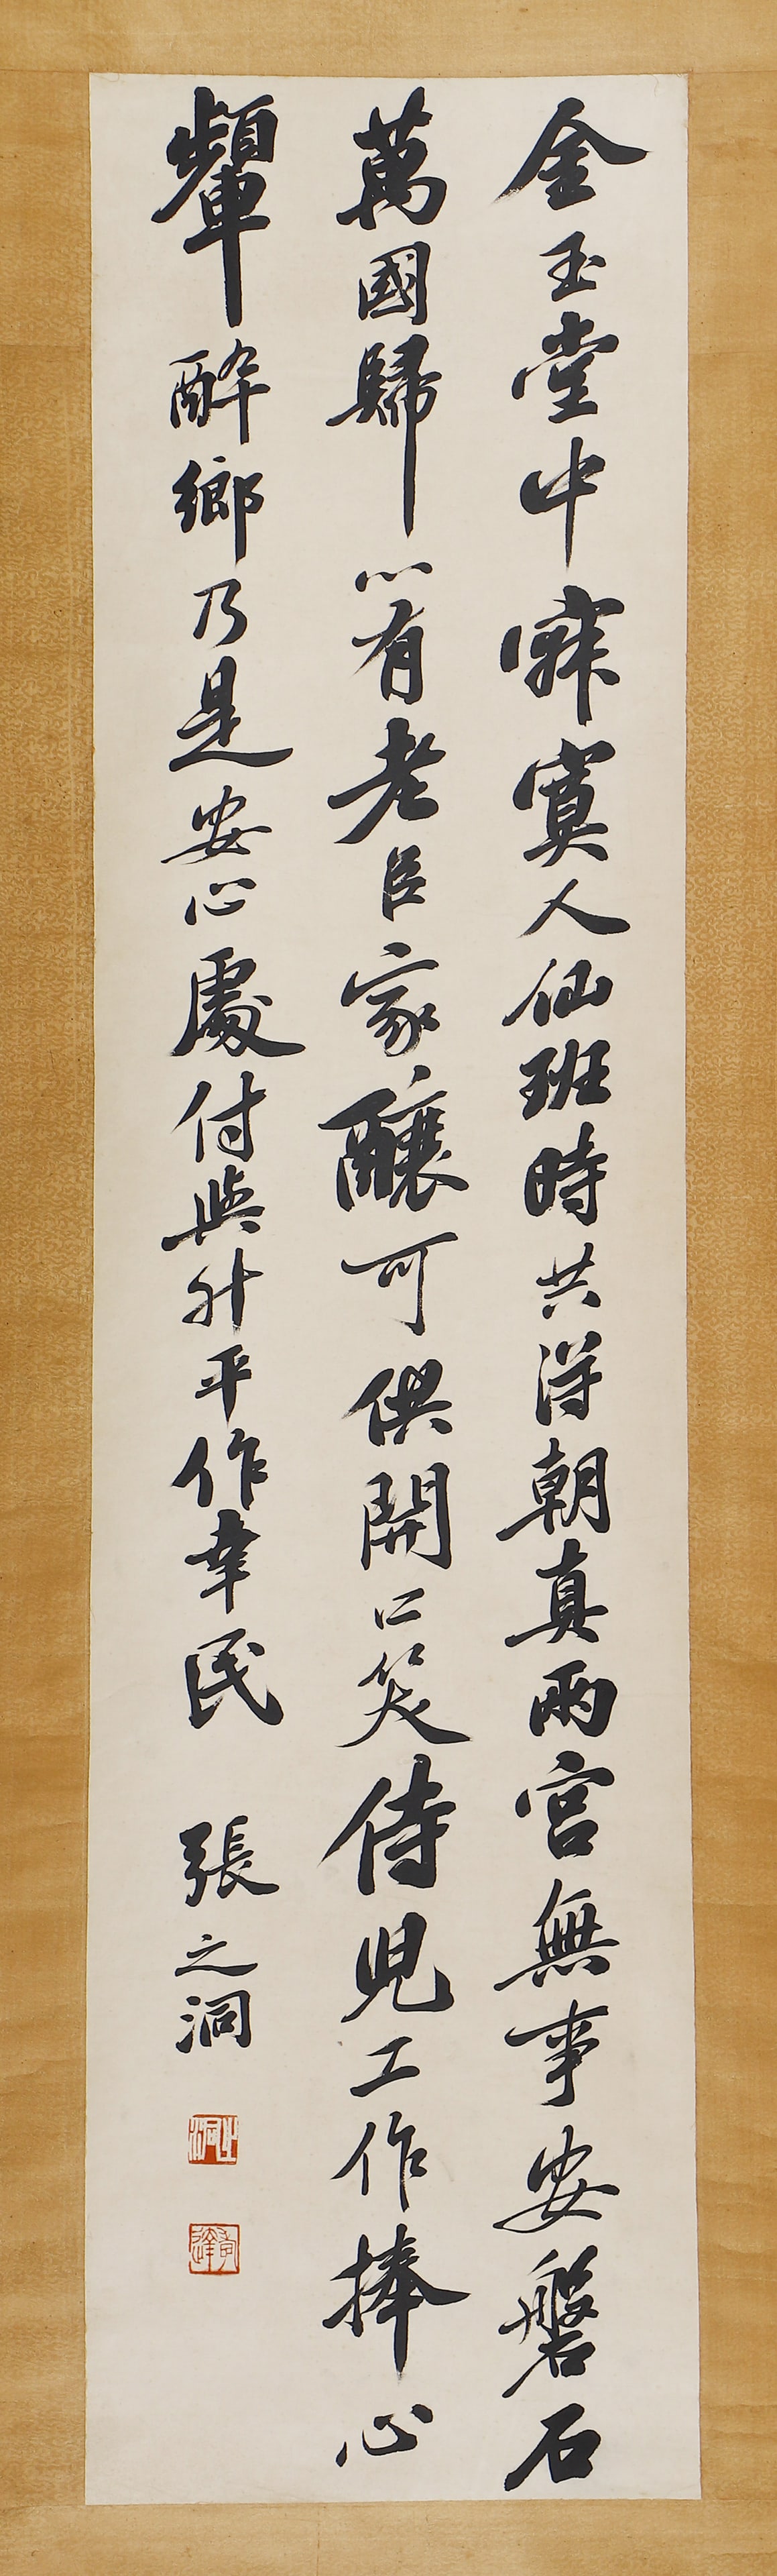 金玉堂中寂寞人仙班時共得朝真兩宮無事安磐石
萬國歸心有老臣家釀可供開口笑侍兒工作捧心
顰醉鄉乃是安心處付與升平作幸民
張之洞
之洞
孝達